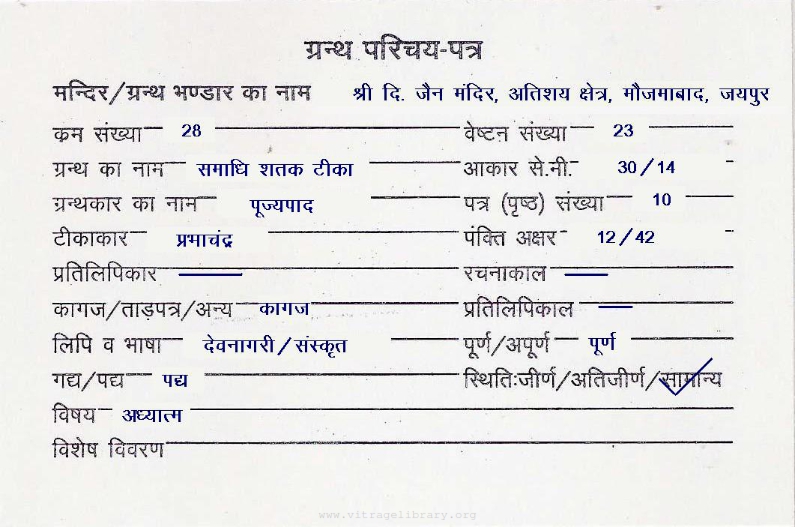 ग्रन्थ परिचय-पत्र
मन्दिर/ग्रन्थ भण्डार का नाम श्री दि. जैन मंदिर, अतिशय क्षेत्र, मौजमाबाद, जयपुर
क्रम संख्या 28 वेष्टन संख्या 23
ग्रन्थ का नाम समाधि शतक टीका आकार से.मी. 30/14
ग्रन्थकार का नाम पूज्यपाद पत्र (पृष्ठ) संख्या 10
टीकाकार प्रभाचंद्र पंक्ति अक्षर 12/42
प्रतिलिपिकार रचनाकाल
कागज/ताड़पत्र/अन्य कागज प्रतिलिपिकाल
लिपि व भाषा देवनागरी/संस्कृत पूर्ण/अपूर्ण पूर्ण
गद्य/पद्य पद्य स्थितिःजीर्ण/अतिजीर्ण/सामान्य
विषय अध्यात्म
विशेष विवरण
www.vitragelibrary.org